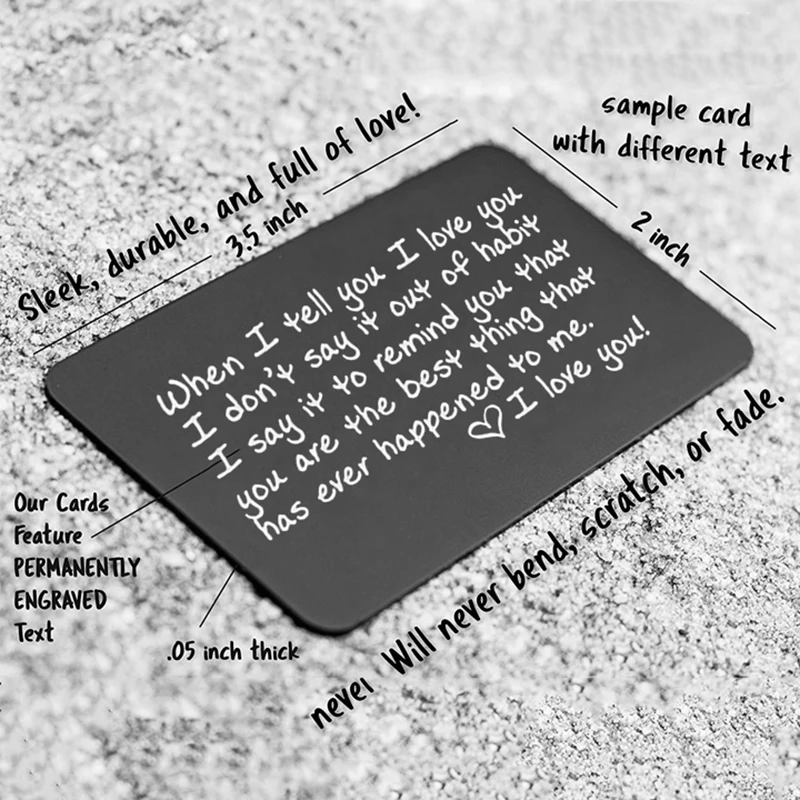 Sleek, durable, and full of love!
3.5 inch
sample card
with different text
2 inch
When I tell you I love you
I don't say it out of habit
I say it to remind you that
you are the best thing that
has ever happened to me.
♡ I love you!
Our Cards
Feature
PERMANENTLY
ENGRAVED
Text
.05 inch thick
Will never bend, scratch, or fade.